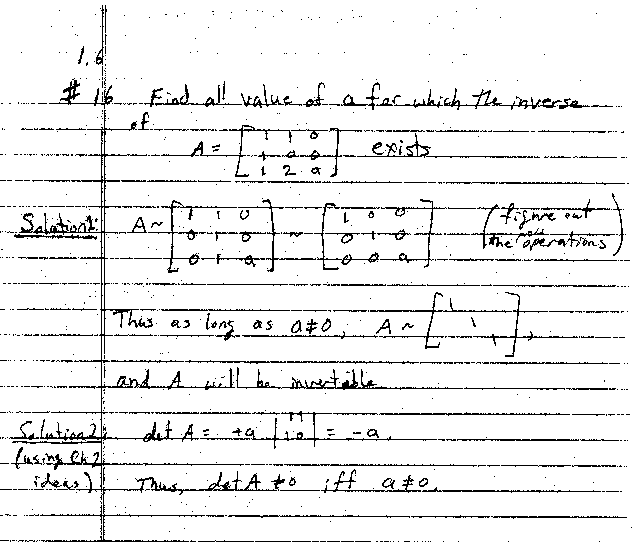 1.6
# 16 Find all value of a for which the inverse
of
A = [ 1 1 0
1 0 0
1 2 a ] exists
Solution1: A ~ [ 1 1 0
0 1 0
0 1 a ] ~ [ 1 0 0
0 1 0
0 0 a ] (figure out
the row operations)
Thus as long as a≠0, A ~ [ 1
1
1 ],
and A will be invertable
Solution2: det A = +a | 1 1
1 0 | = -a.
(using Ch 2
ideas) Thus, det A ≠ 0 iff a ≠ 0.